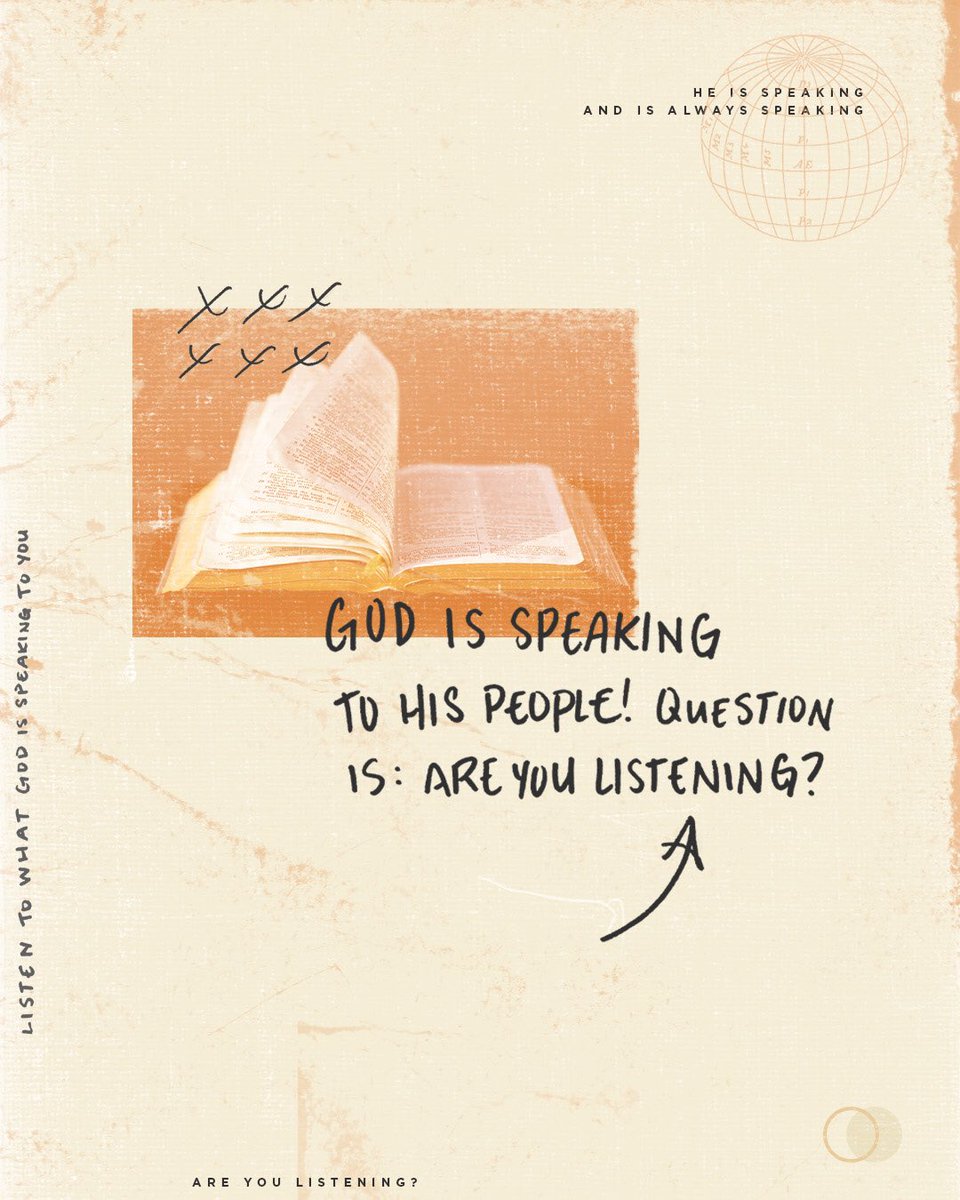 HE IS SPEAKING
AND IS ALWAYS SPEAKING
GOD IS SPEAKING
TO HIS PEOPLE! QUESTION
IS: ARE YOU LISTENING?
LISTEN TO WHAT GOD IS SPEAKING TO YOU
ARE YOU LISTENING?